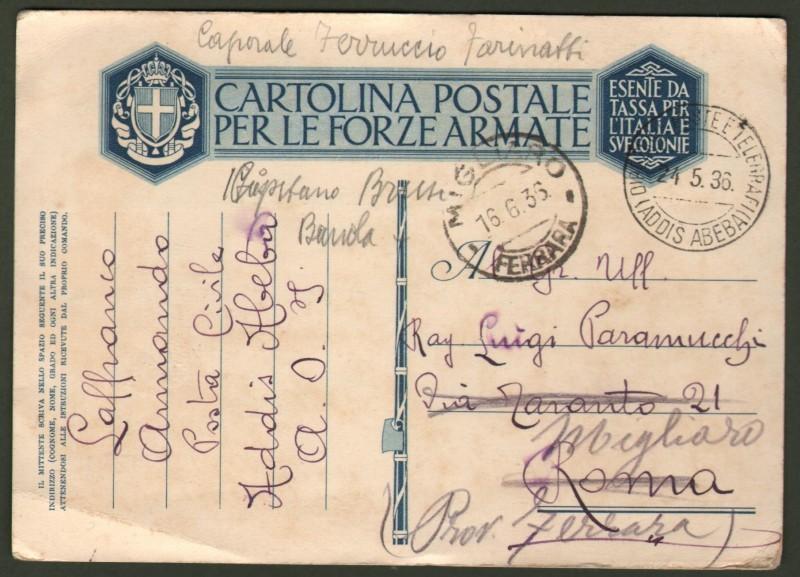 Caporale Ferruccio Farinatti
CARTOLINA POSTALE
PER LE FORZE ARMATE
ESENTE DA
TASSA PER
L'ITALIA E
SVE COLONIE
POSTE E TELEGRAFI
24.5.36.
(ADDIS ABEBA)
MIGLIARO
16.6.36.
FERRARA
Capitano
IL MITTENTE SCRIVA NELLO SPAZIO SEGUENTE IL SUO PRECISO
INDIRIZZO (COGNOME, NOME, GRADO ED OGNI ALTRA INDICAZIONE)
ATTENENDOSI ALLE ISTRUZIONI RICEVUTE DAL PROPRIO COMANDO.
Laffranco
Armando
Posta Civile
Addis Abeba
A. O. I.
A Gr. Uff.
Rag. Luigi Paramucchi
Via Taranto 21
Migliaro
Roma
(Prov. Ferrara)